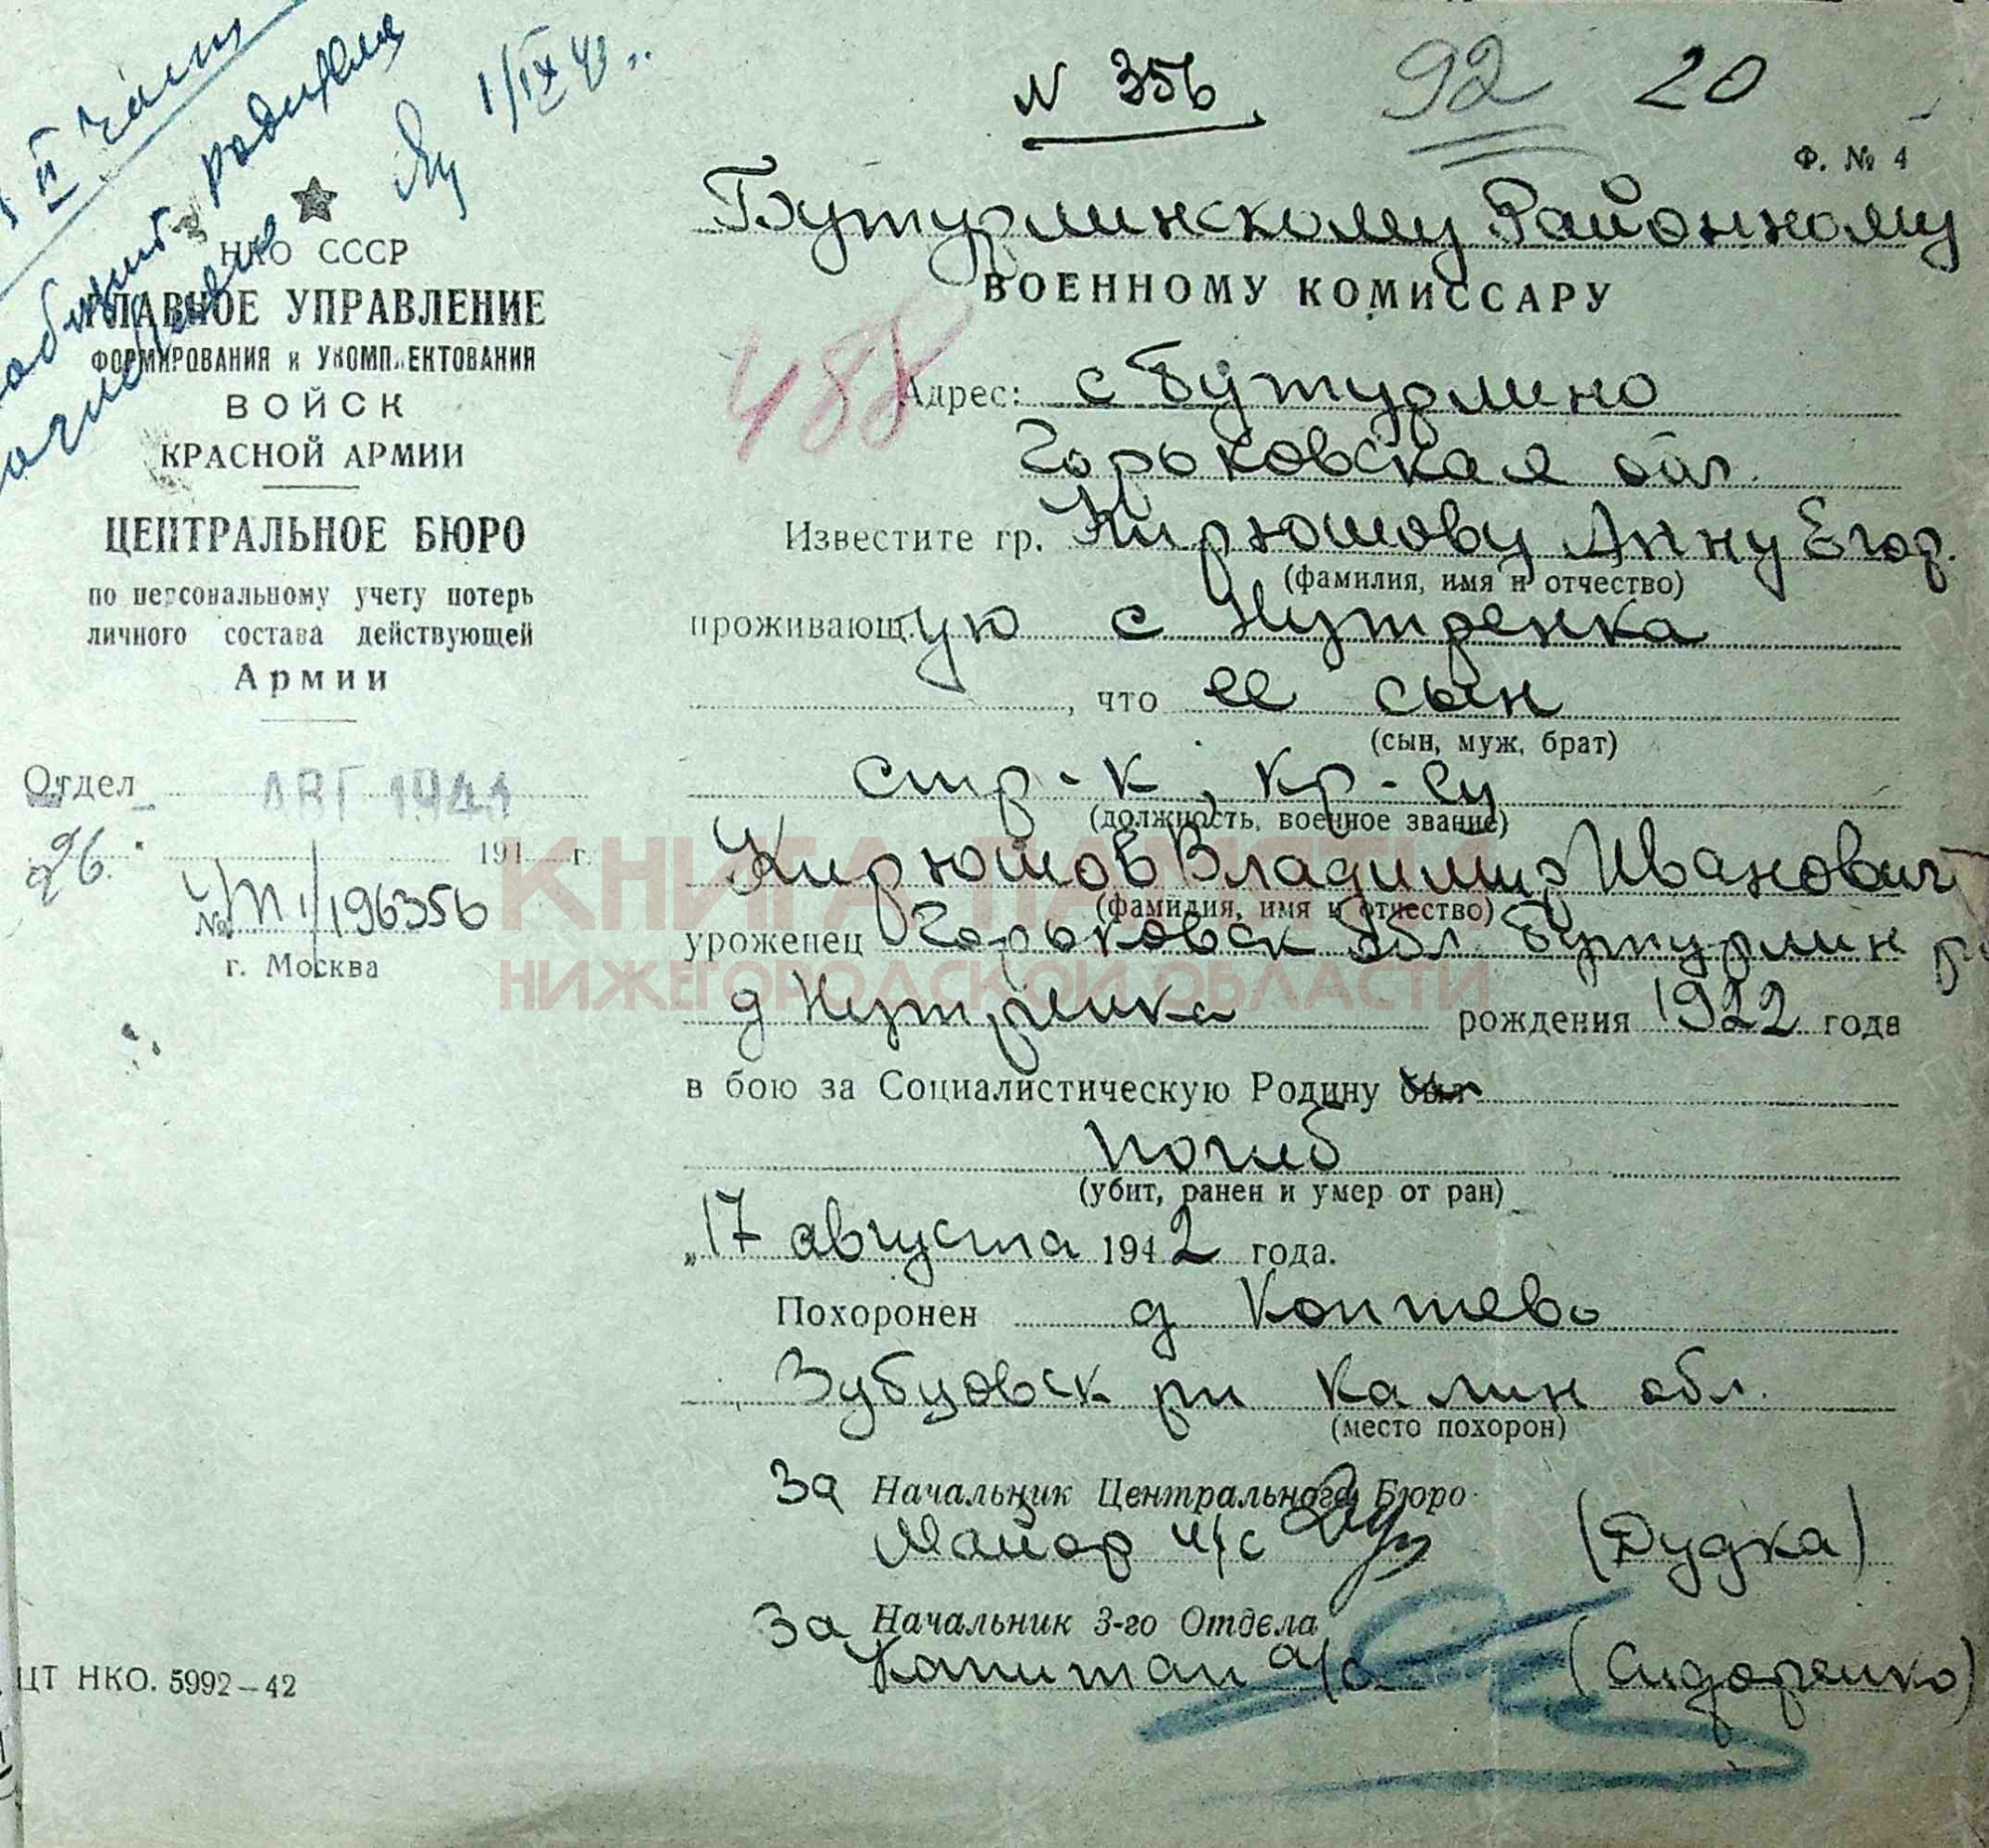 II части
родителя
1/IX 43
N 356
92
20
Ф. № 4
НКО СССР
ГЛАВНОЕ УПРАВЛЕНИЕ
ФОРМИРОВАНИЯ и УКОМПЛЕКТОВАНИЯ
ВОЙСК
КРАСНОЙ АРМИИ
ЦЕНТРАЛЬНОЕ БЮРО
по персональному учету потерь
личного состава действующей
Армии
Отдел
АВГ 1941
26. 194 г.
№ 1/196356
г. Москва
ЦТ НКО. 5992—42
Бутурлинскому Районному
ВОЕННОМУ КОМИССАРУ
488
Адрес: с Бутурлино
Горьковская обл.
Известите гр. Кирюшову Анну Егор.
(фамилия, имя и отчество)
проживающую с Нутренка
, что ее сын
(сын, муж, брат)
стр-к, кр-ец
(должность, военное звание)
Кирюшов Владимир Иванович
(фамилия, имя и отчество)
уроженец Горьковск обл Бутурлин р
д Нутренка рождения 1922 года
в бою за Социалистическую Родину был
погиб
(убит, ранен и умер от ран)
„17 августа 1942 года.
Похоронен д Коптево
Зубцовск рн Калин обл.
(место похорон)
За Начальник Центрального Бюро
Майор и/с (Дудка)
За Начальник 3-го Отдела
Капитан а/с (Сидоренко)
КНИГА ПАМЯТИ
НИЖЕГОРОДСКОЙ ОБЛАСТИ